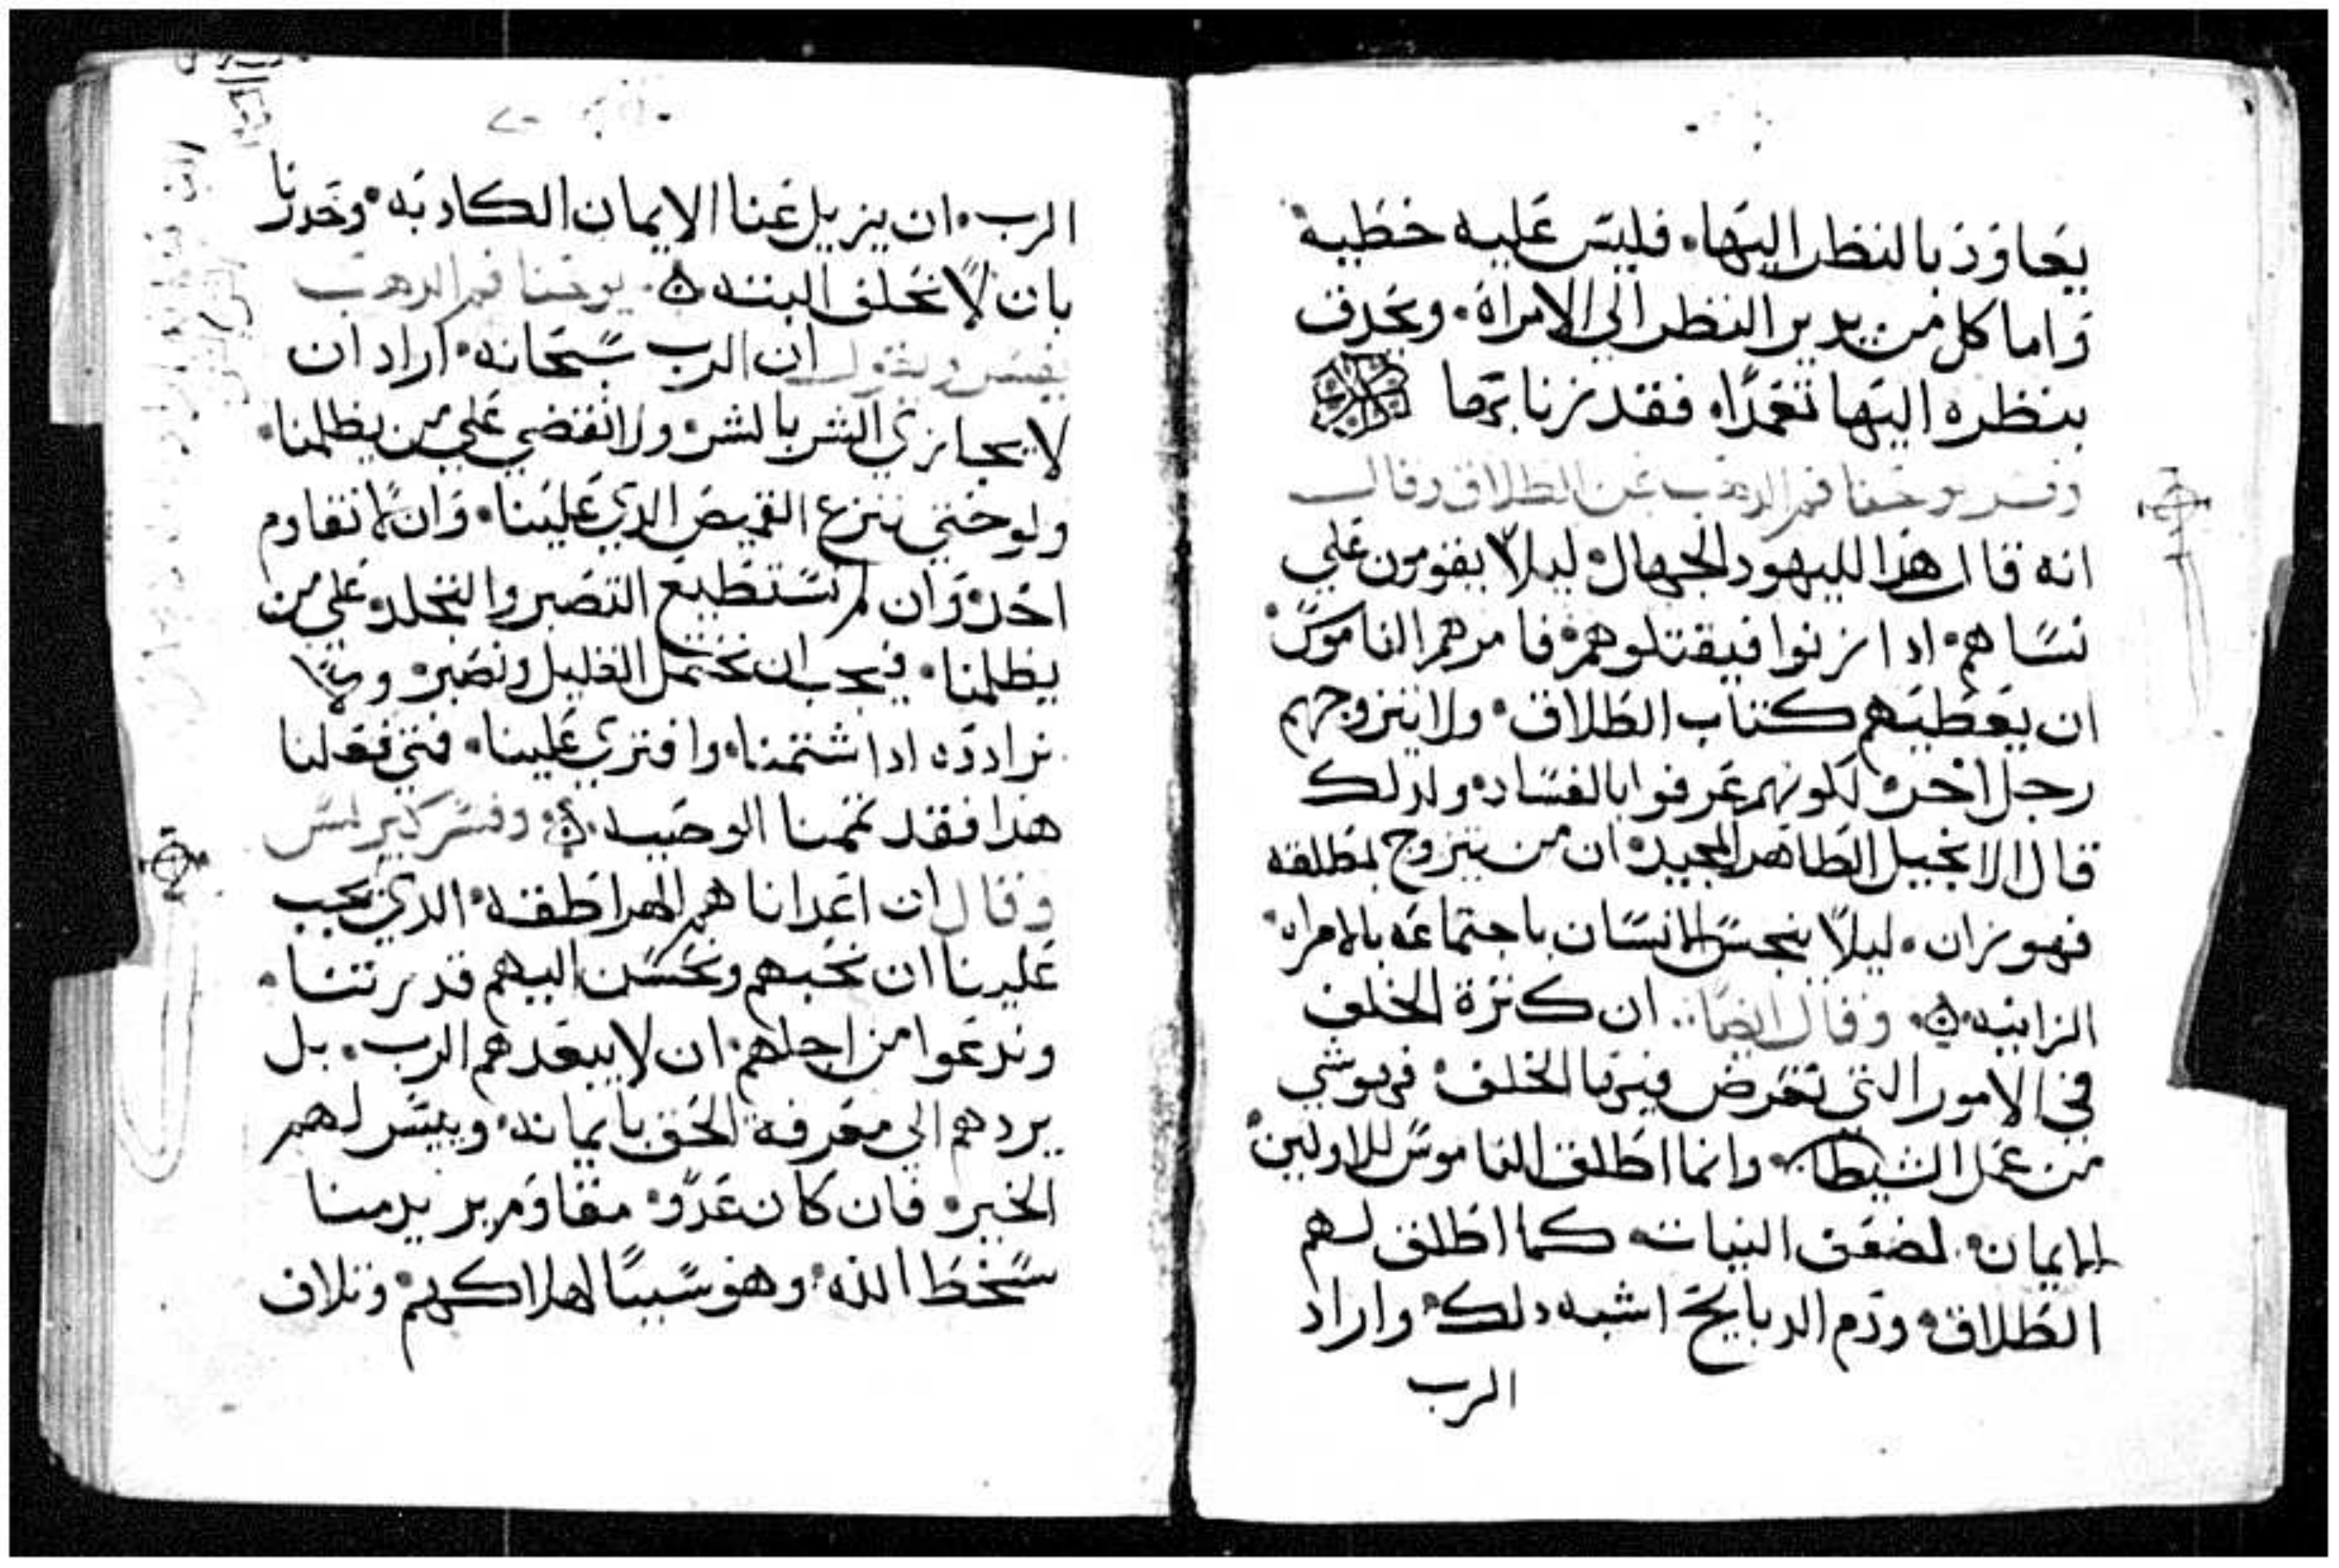 يعاود بالنظر اليها. فليس عليه خطية
واما كل من يدير النظر الي الامراة. ويحدق
بنظره اليها تعمدًا. فقد زنا بها
وفسر يوحنا فم الدهب عن الطلاق وقال
انه قال هذا لليهود الجهال. ليلا يقومون علي
نساهم. ادا زنوا فيقتلوهم. فامرهم الناموس.
ان يعطيهم كتاب الطلاق. ولا يتزوجهم
رجل اخر. لكونهم عرفوا بالفساد. ولدلك
قال الانجيل الطاهر المجيد. ان من يتزوج بمطلقه
فهو زان. ليلا ينجس الانسان باجتماعه بالامراه.
الزانيه. وقال ايضًا.. ان كثرة الحلف
في الامور التي تعرض فيها الحلف. فهو شي
من عمل الشيطان. وانما اطلق الناموس للاولين.
الايمان. لضعف النيات. كما اطلق لهم
الطلاق. ودم الدبايح اشبه دلك. واراد
الرب
الرب. ان يزيل عنا الايمان الكادبه. وحدرنا
بان لا نحلف البته. يوحنا فم الدهب
يفسر ويقول ان الرب سبحانه. اراد ان
لا يجازي الشر بالشر. ولا نقضي علي من يظلمنا.
ولو حتي ننزع القميص الدي علينا. وان لا نقاوم
احد. وان لم نستطيع التصبر والتجلد. علي من
يظلمنا. فيجب ان نحتمل القليل ونصبر. ولا
نرادده ادا شتمنا. وافتري علينا. فمتي فعلنا
هدا فقد تممنا الوصيه. وفسر كيرلس
وقال ان اعدانا هم الهراطقه. الدي يجب
علينا ان نحبهم ونحسن اليهم قدرتنا.
وندعوا من اجلهم. ان لا يبعدهم الرب. بل
يردهم الي معرفة الحق بايمانه. وييسر لهم
الخير. فان كان عدو. مقاوم يريد منا
سخط الله. وهو سببًا لهلاكهم. وتلاف